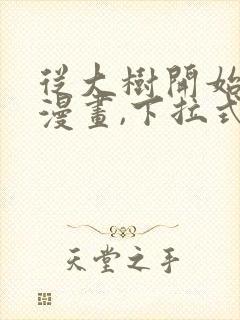 從大樹開始
漫畫,下拉式
天堂之手